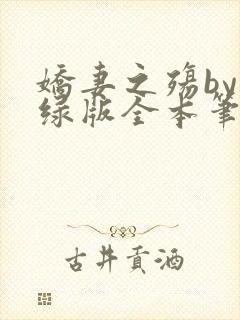 嬌妻之殤by
绿版全本筆
古井貢酒